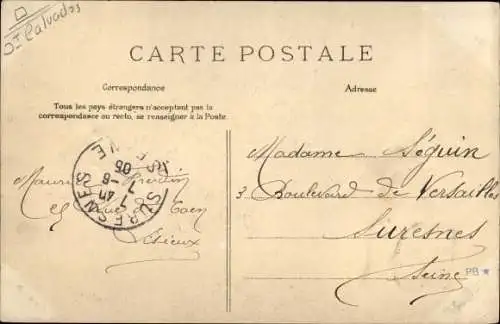 Calvados
CARTE POSTALE
Correspondance
Adresse
Tous les pays étrangers n'acceptant pas la
correspondance au recto, se renseigner à la Poste
Madame Séguin
3 Boulevard de Versailles
Suresnes
Seine
SURESNES
05
Rue de Caen
Lisieux
PB